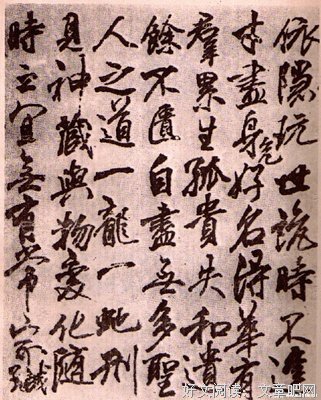 依隱玩世詭時不逢
才盡身危好名得華有
羣累生孤貴失和遺
餘不匱自盡無多聖
人之道一龍一蛇形
見神藏與物變化隨
時之宜無有常
好文阅读：文章吧网